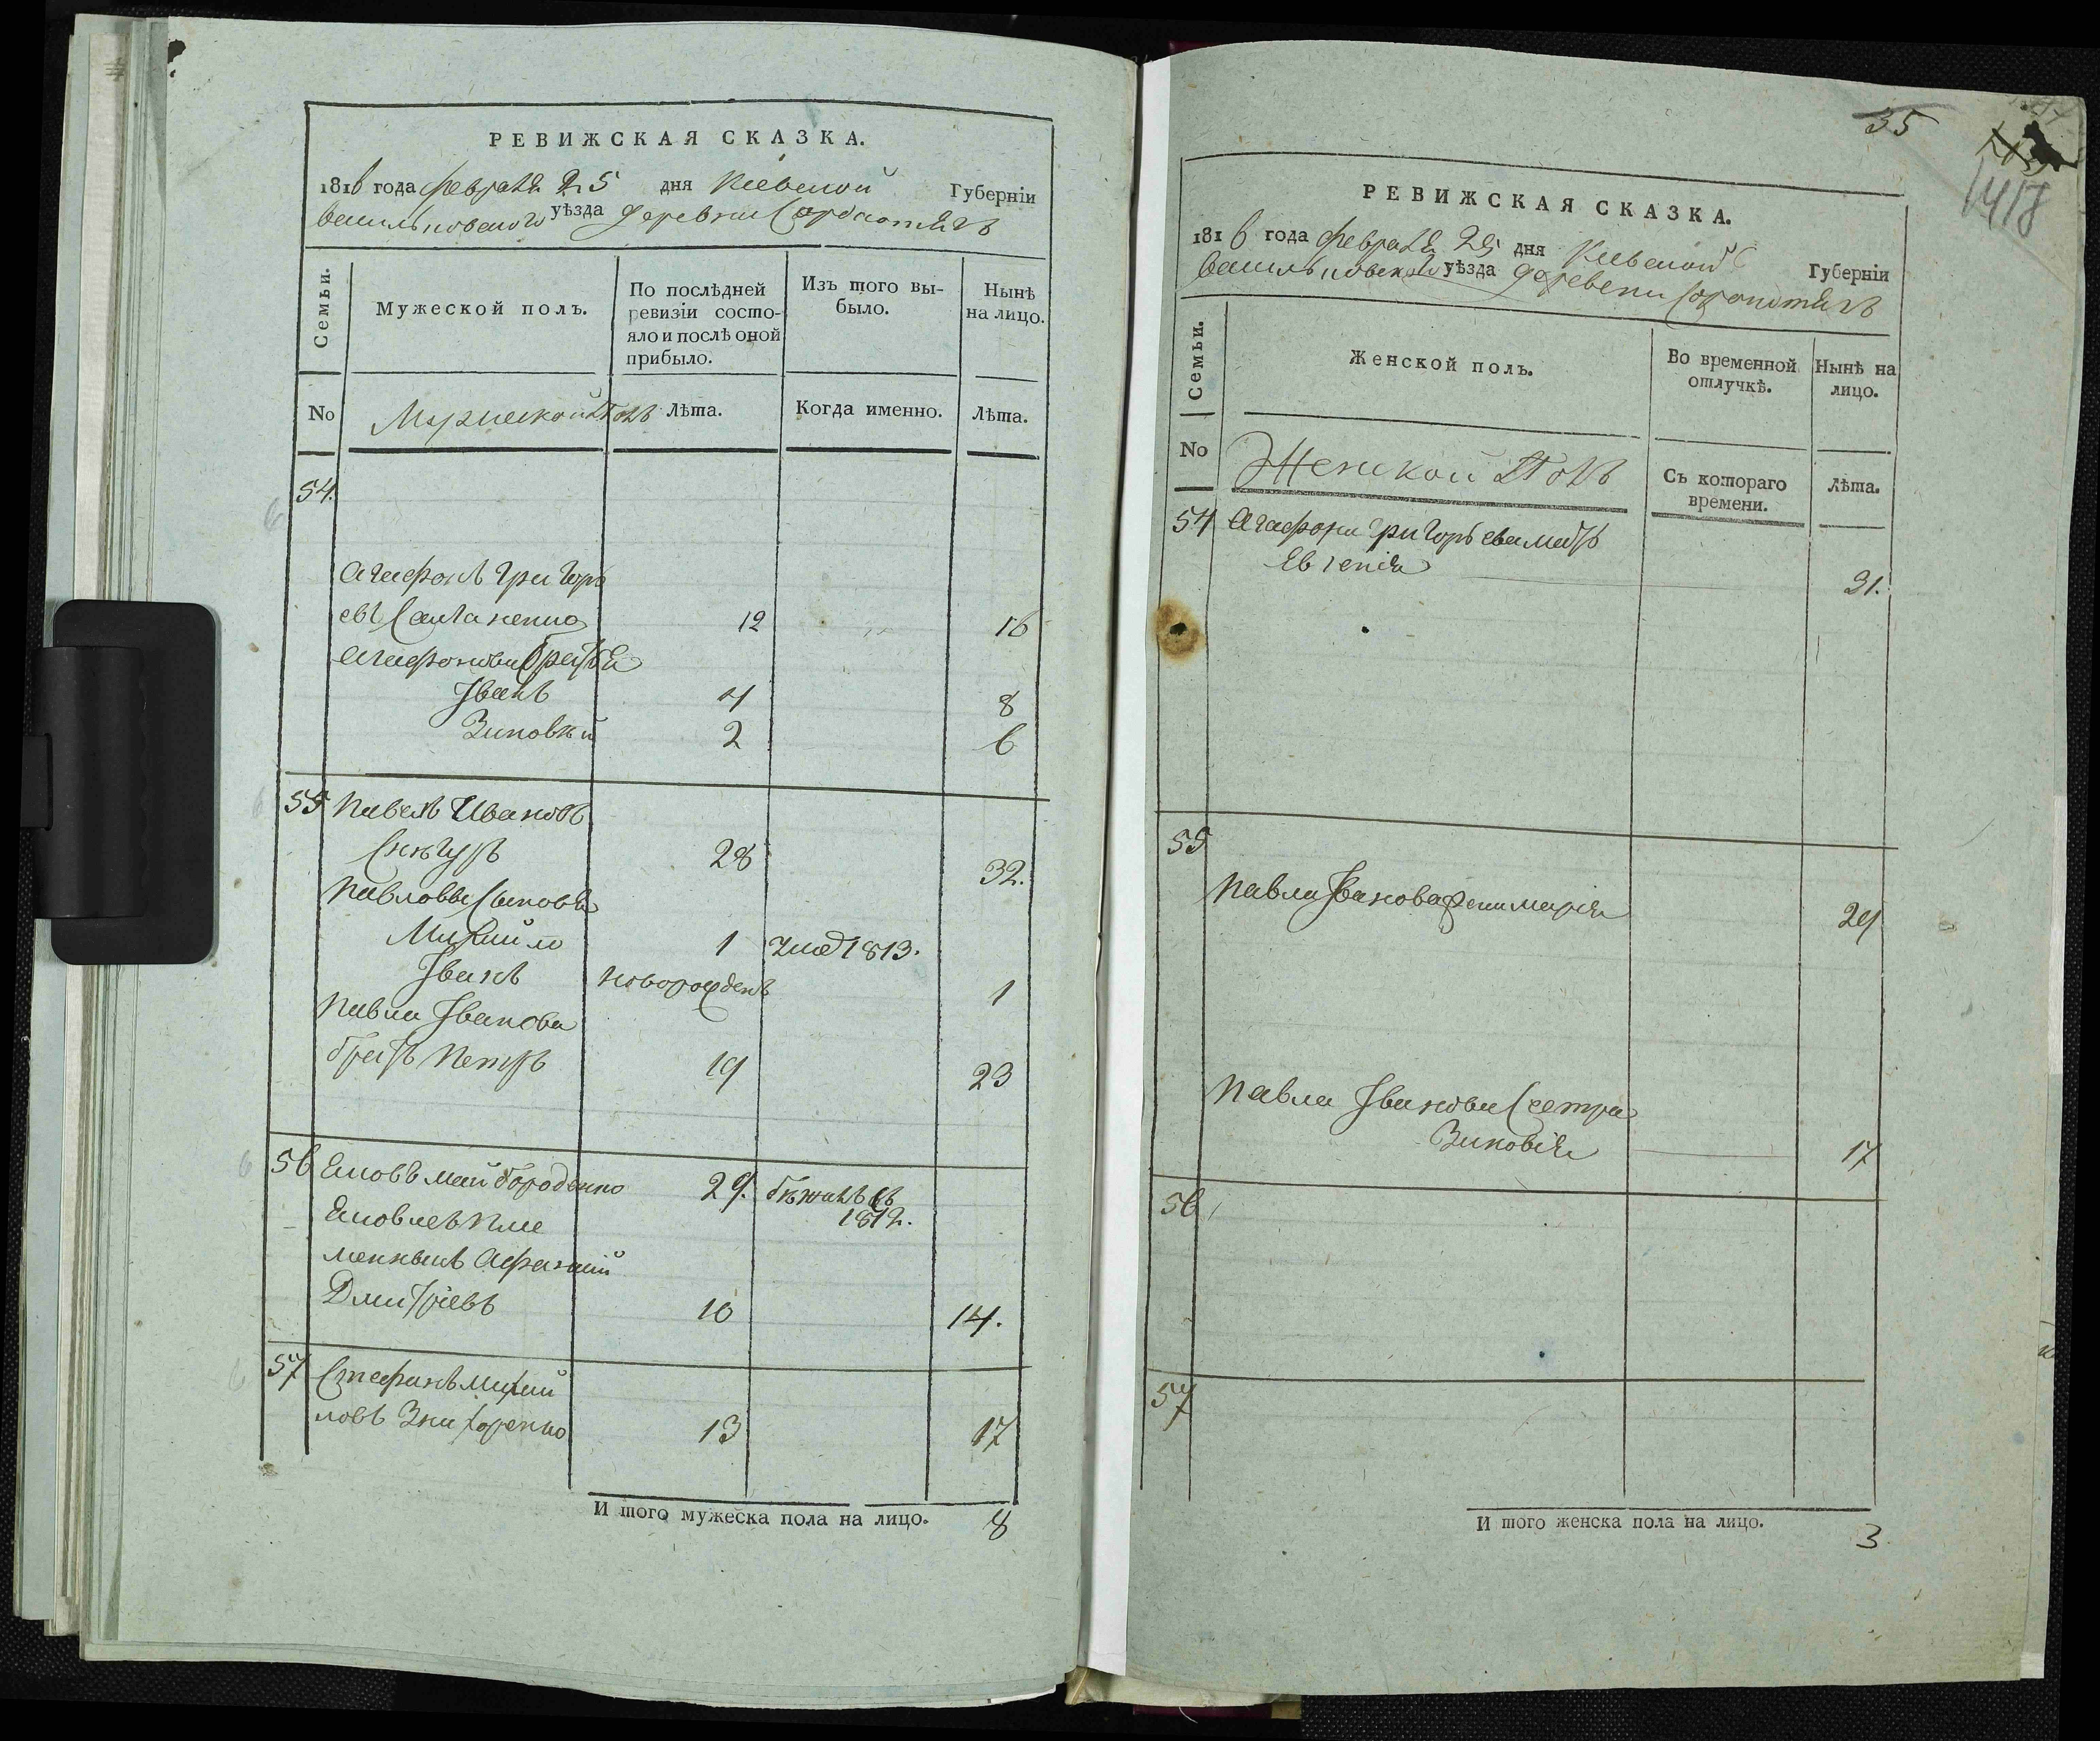 РЕВИЖСКАЯ СКАЗКА.
1816 года февраля 25 дня Киевской Губерніи
васильковского уѣзда деревни
Семьи.
Мужеской полъ.
По послѣдней ревизіи состояло и послѣ оной прибыло.
Изъ того выбыло.
Нынѣ на лицо.
No
Мужеской Полъ
Лѣта.
Когда именно.
Лѣта.
54.
Агафонъ Григорь
евъ 12 16
Агафонови братья
Іванъ 4 8
Зиновѣй 2 6
55 Павелъ Ивановъ
Снѣгуръ 28 32.
Павловы Сыновья
Михайло 1 1813.
Іванъ новорожденъ 1
Павла Іванова
братъ Петръ 19 23
56 Яковъ Майбороденко 29. бѣжалъ въ
1812.
Яковлевъ пле
менныкъ Афанасій
Дмитріевъ 10 14.
57 Стефанъ Михай
ловъ 13 17
И того мужеска пола на лицо. 8
35
1418
РЕВИЖСКАЯ СКАЗКА.
1816 года февраля 25 дня Киевской Губерніи
васильковского уѣзда деревени
Семьи.
Женской полъ.
Во временной отлучкѣ.
Нынѣ на лицо.
No
Женской Полъ
Съ котораго времени.
Лѣта.
54 Агафона Григорьева мать
Евгенія 31.
55
Павла Іванова жена Марія 24
Павла Іванова Сестра
Зиновія 17
56
57
И того женска пола на лицо. 3